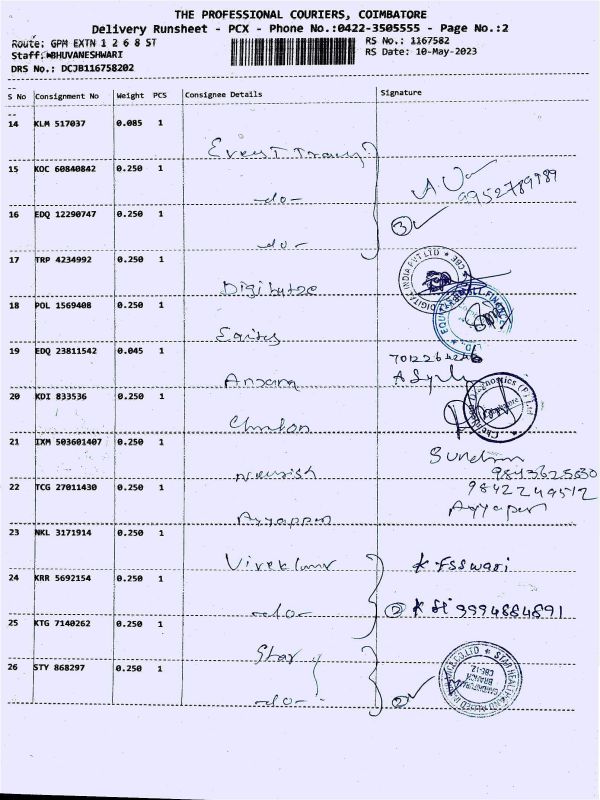 THE PROFESSIONAL COURIERS, COIMBATORE
Delivery Runsheet - PCX - Phone No.:0422-3505555 - Page No.:2
Route: GPM EXTN 1 2 6 8 ST
RS No.: 1167582
Staff: BHUVANESHWARI
RS Date: 10-May-2023
DRS No.: DCJB116758202
S No Consignment No Weight PCS Consignee Details Signature
14 KLM 517037 0.085 1
15 KOC 60840842 0.250 1
-do-
9952789989
16 EDQ 12290747 0.250 1
-do-
3
17 TRP 4234992 0.250 1
DIGITAL INDIA PVT LTD * CBE *
18 POL 1569408 0.250 1
Equitas
19 EDQ 23811542 0.045 1
20 KDI 833536 0.250 1
21 IXM 503601407 0.250 1
22 TCG 27011430 0.250 1
Ayyappan
23 NKL 3171914 0.250 1
24 KRR 5692154 0.250 1
-do-
2
9994884891
25 KTG 7140262 0.250 1
Star
26 STY 868297 0.250 1
-do-
2